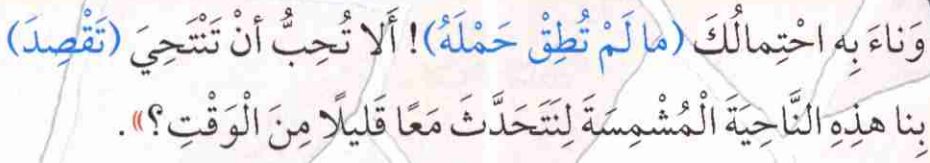 وَنَاءَ بِهِ احْتِمالُكَ (ما لَمْ تُطِقْ حَمْلَهُ)! أَلا تُحِبُّ أنْ تَنْتَحِيَ (تَقْصِدَ)
بِنا هذِهِ النَّاحِيَةَ الْمُشْمِسَةَ لِنَتَحَدَّثَ مَعًا قَليلًا مِنَ الْوَقْتِ؟».